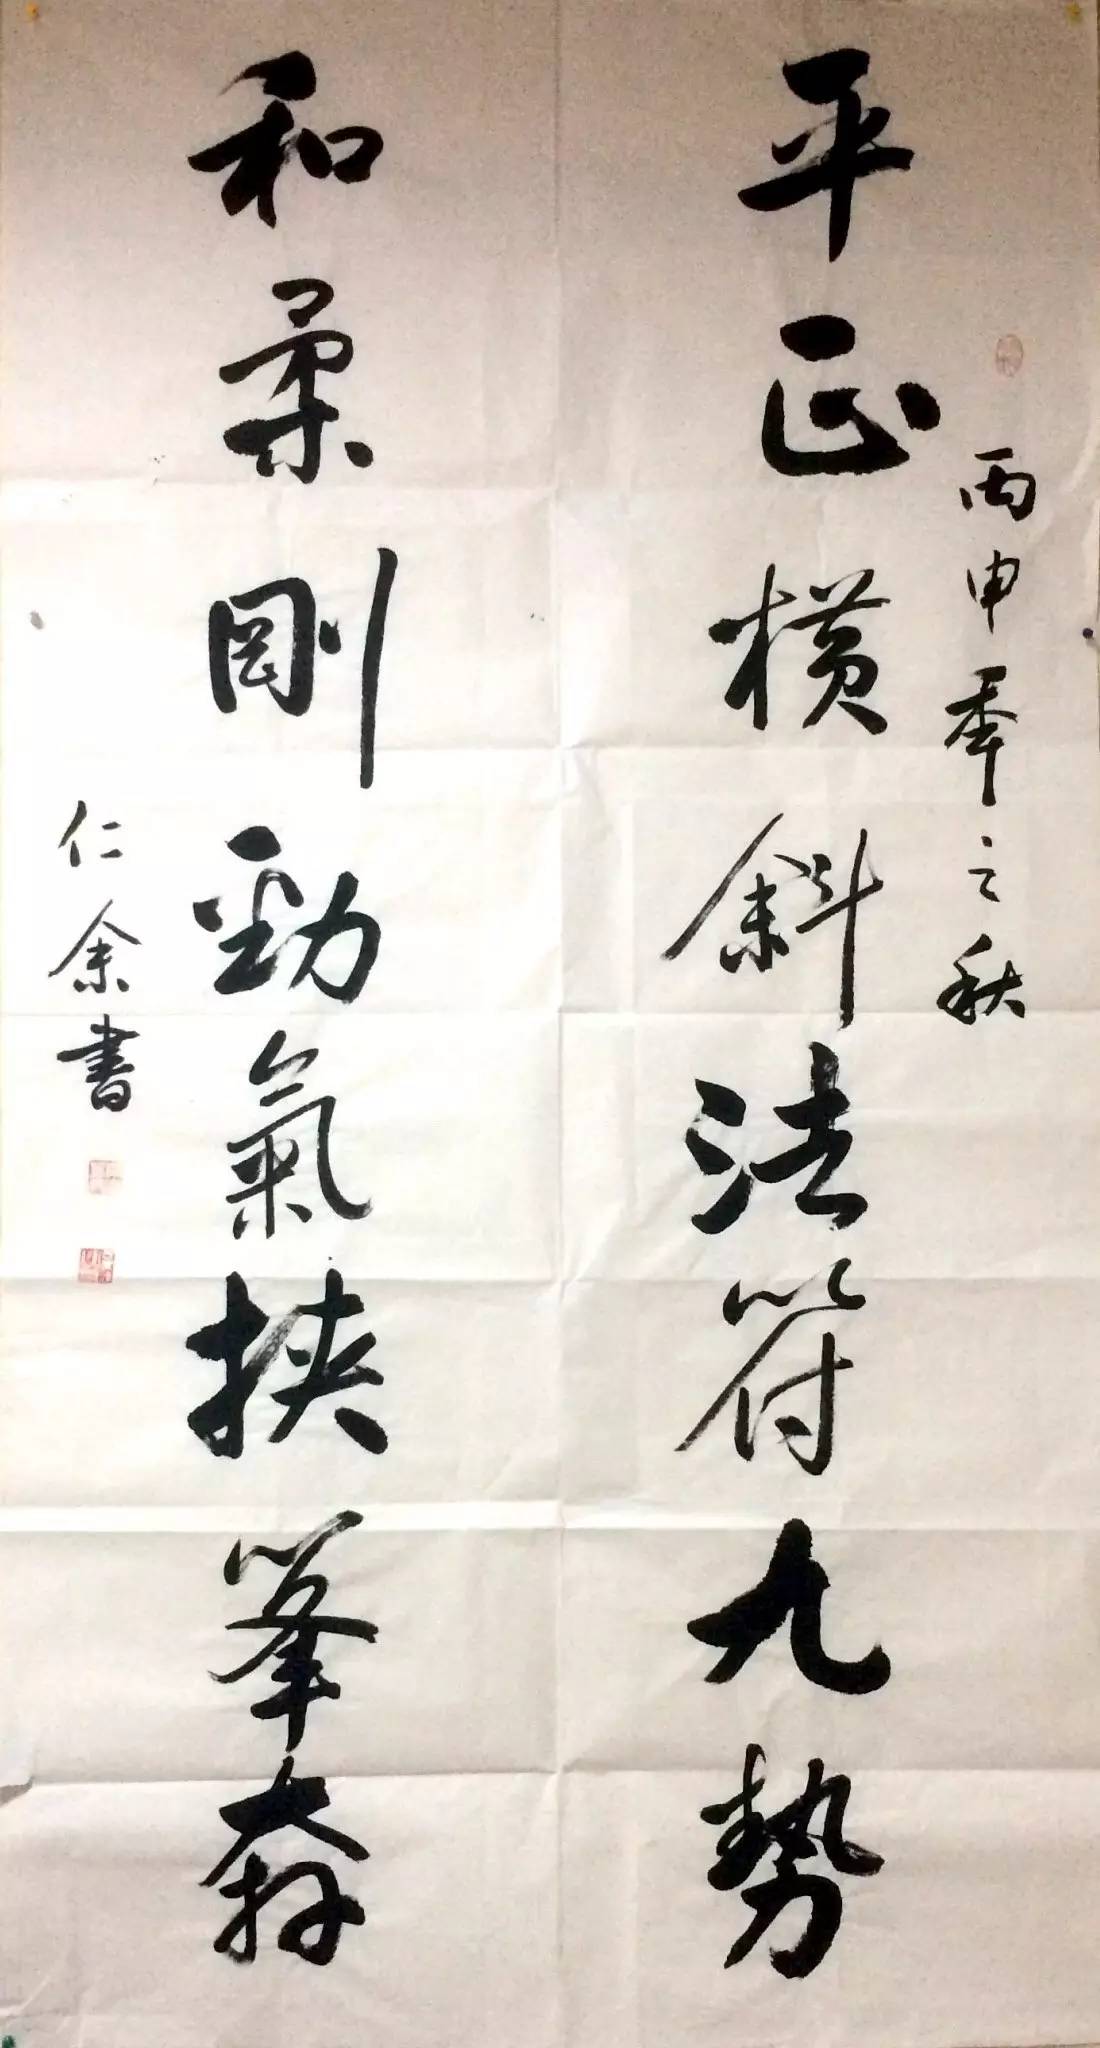 丙申年之秋
平正橫斜法符九勢
和柔剛勁氣挾
仁余書